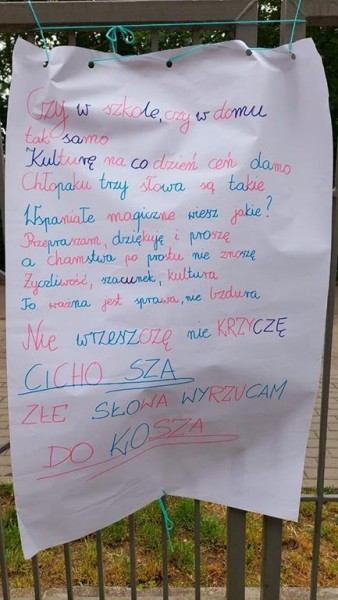 Czy w szkole, czy w domu
tak samo
Kulturę na co dzień ceń damo
Chłopaku trzy słowa są takie
Wspaniałe magiczne wiesz jakie?
Przepraszam, dziękuję i proszę
a chamstwa po prostu nie znoszę
Życzliwość, szacunek, kultura
To ważna jest sprawa, nie bzdura
Nie wrzeszczę nie KRZYCZĘ
CICHO SZA
ZŁE SŁOWA WYRZUCAM
DO KOSZA